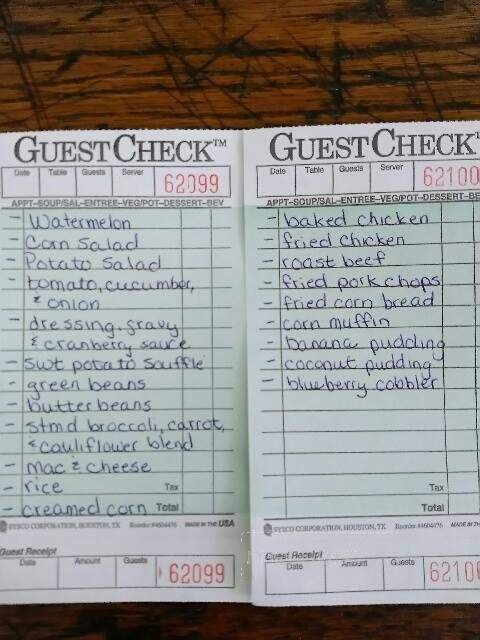 GUEST CHECK™
Date Table Guests Server
62099
APPT-SOUP/SAL-ENTREE-VEG/POT-DESSERT-BEV
- Watermelon
- Corn Salad
- Potato Salad
- tomato, cucumber,
& onion
- dressing, gravy
& cranberry sauce
- swt potato souffle
- green beans
- butterbeans
- stmd broccoli, carrot,
& cauliflower blend
- mac & cheese
- rice
Tax
- creamed corn Total
SYSCO CORPORATION, HOUSTON, TX Reorder #4604476 MADE IN THE USA
Guest Receipt
Date Amount Guests
62099
GUEST CHECK
Date Table Guests Server
62100
APPT-SOUP/SAL-ENTREE-VEG/POT-DESSERT-BE
- baked chicken
- fried chicken
- roast beef
- fried pork chops
- fried corn bread
- corn muffin
- banana pudding
- coconut pudding
- blueberry cobbler
Tax
Total
SYSCO CORPORATION, HOUSTON, TX Reorder #4604476 MADE IN TH
Guest Receipt
Date Amount Guests
6210